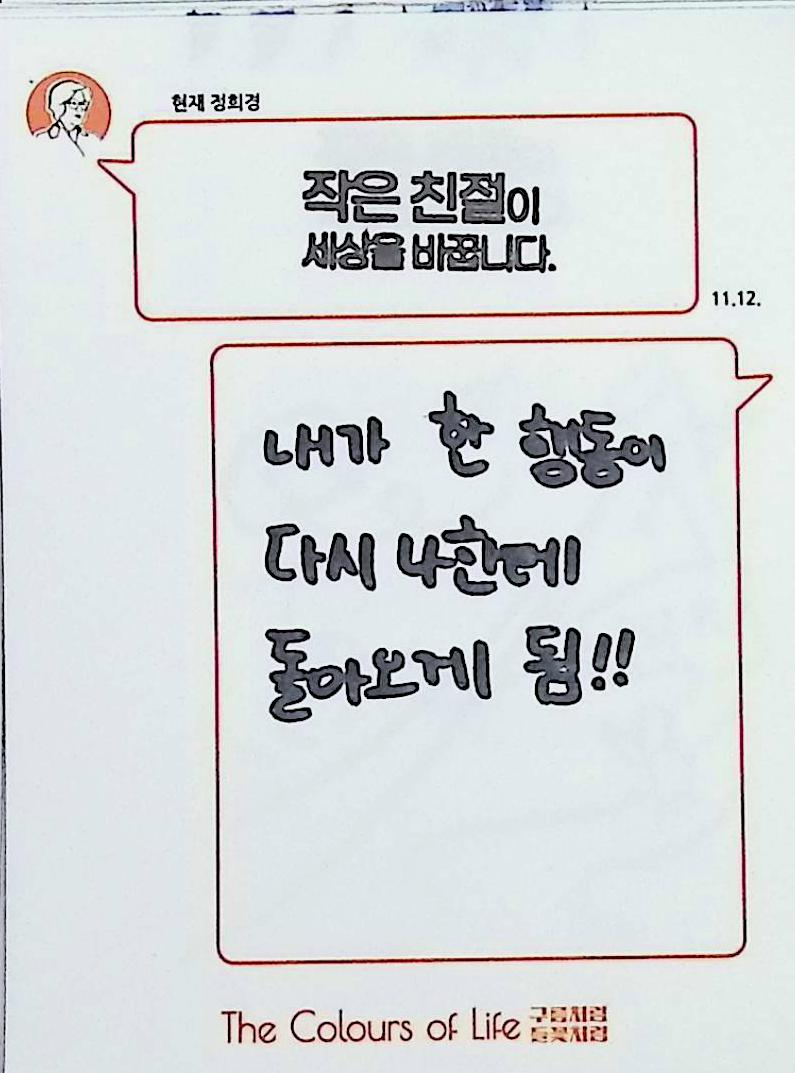 현재 정희경
작은 친절이
세상을 바꿉니다.
11.12.
내가 한 행동이
다시 나한테
돌아오게 됨!!
The Colours of Life 구름처럼
들꽃처럼